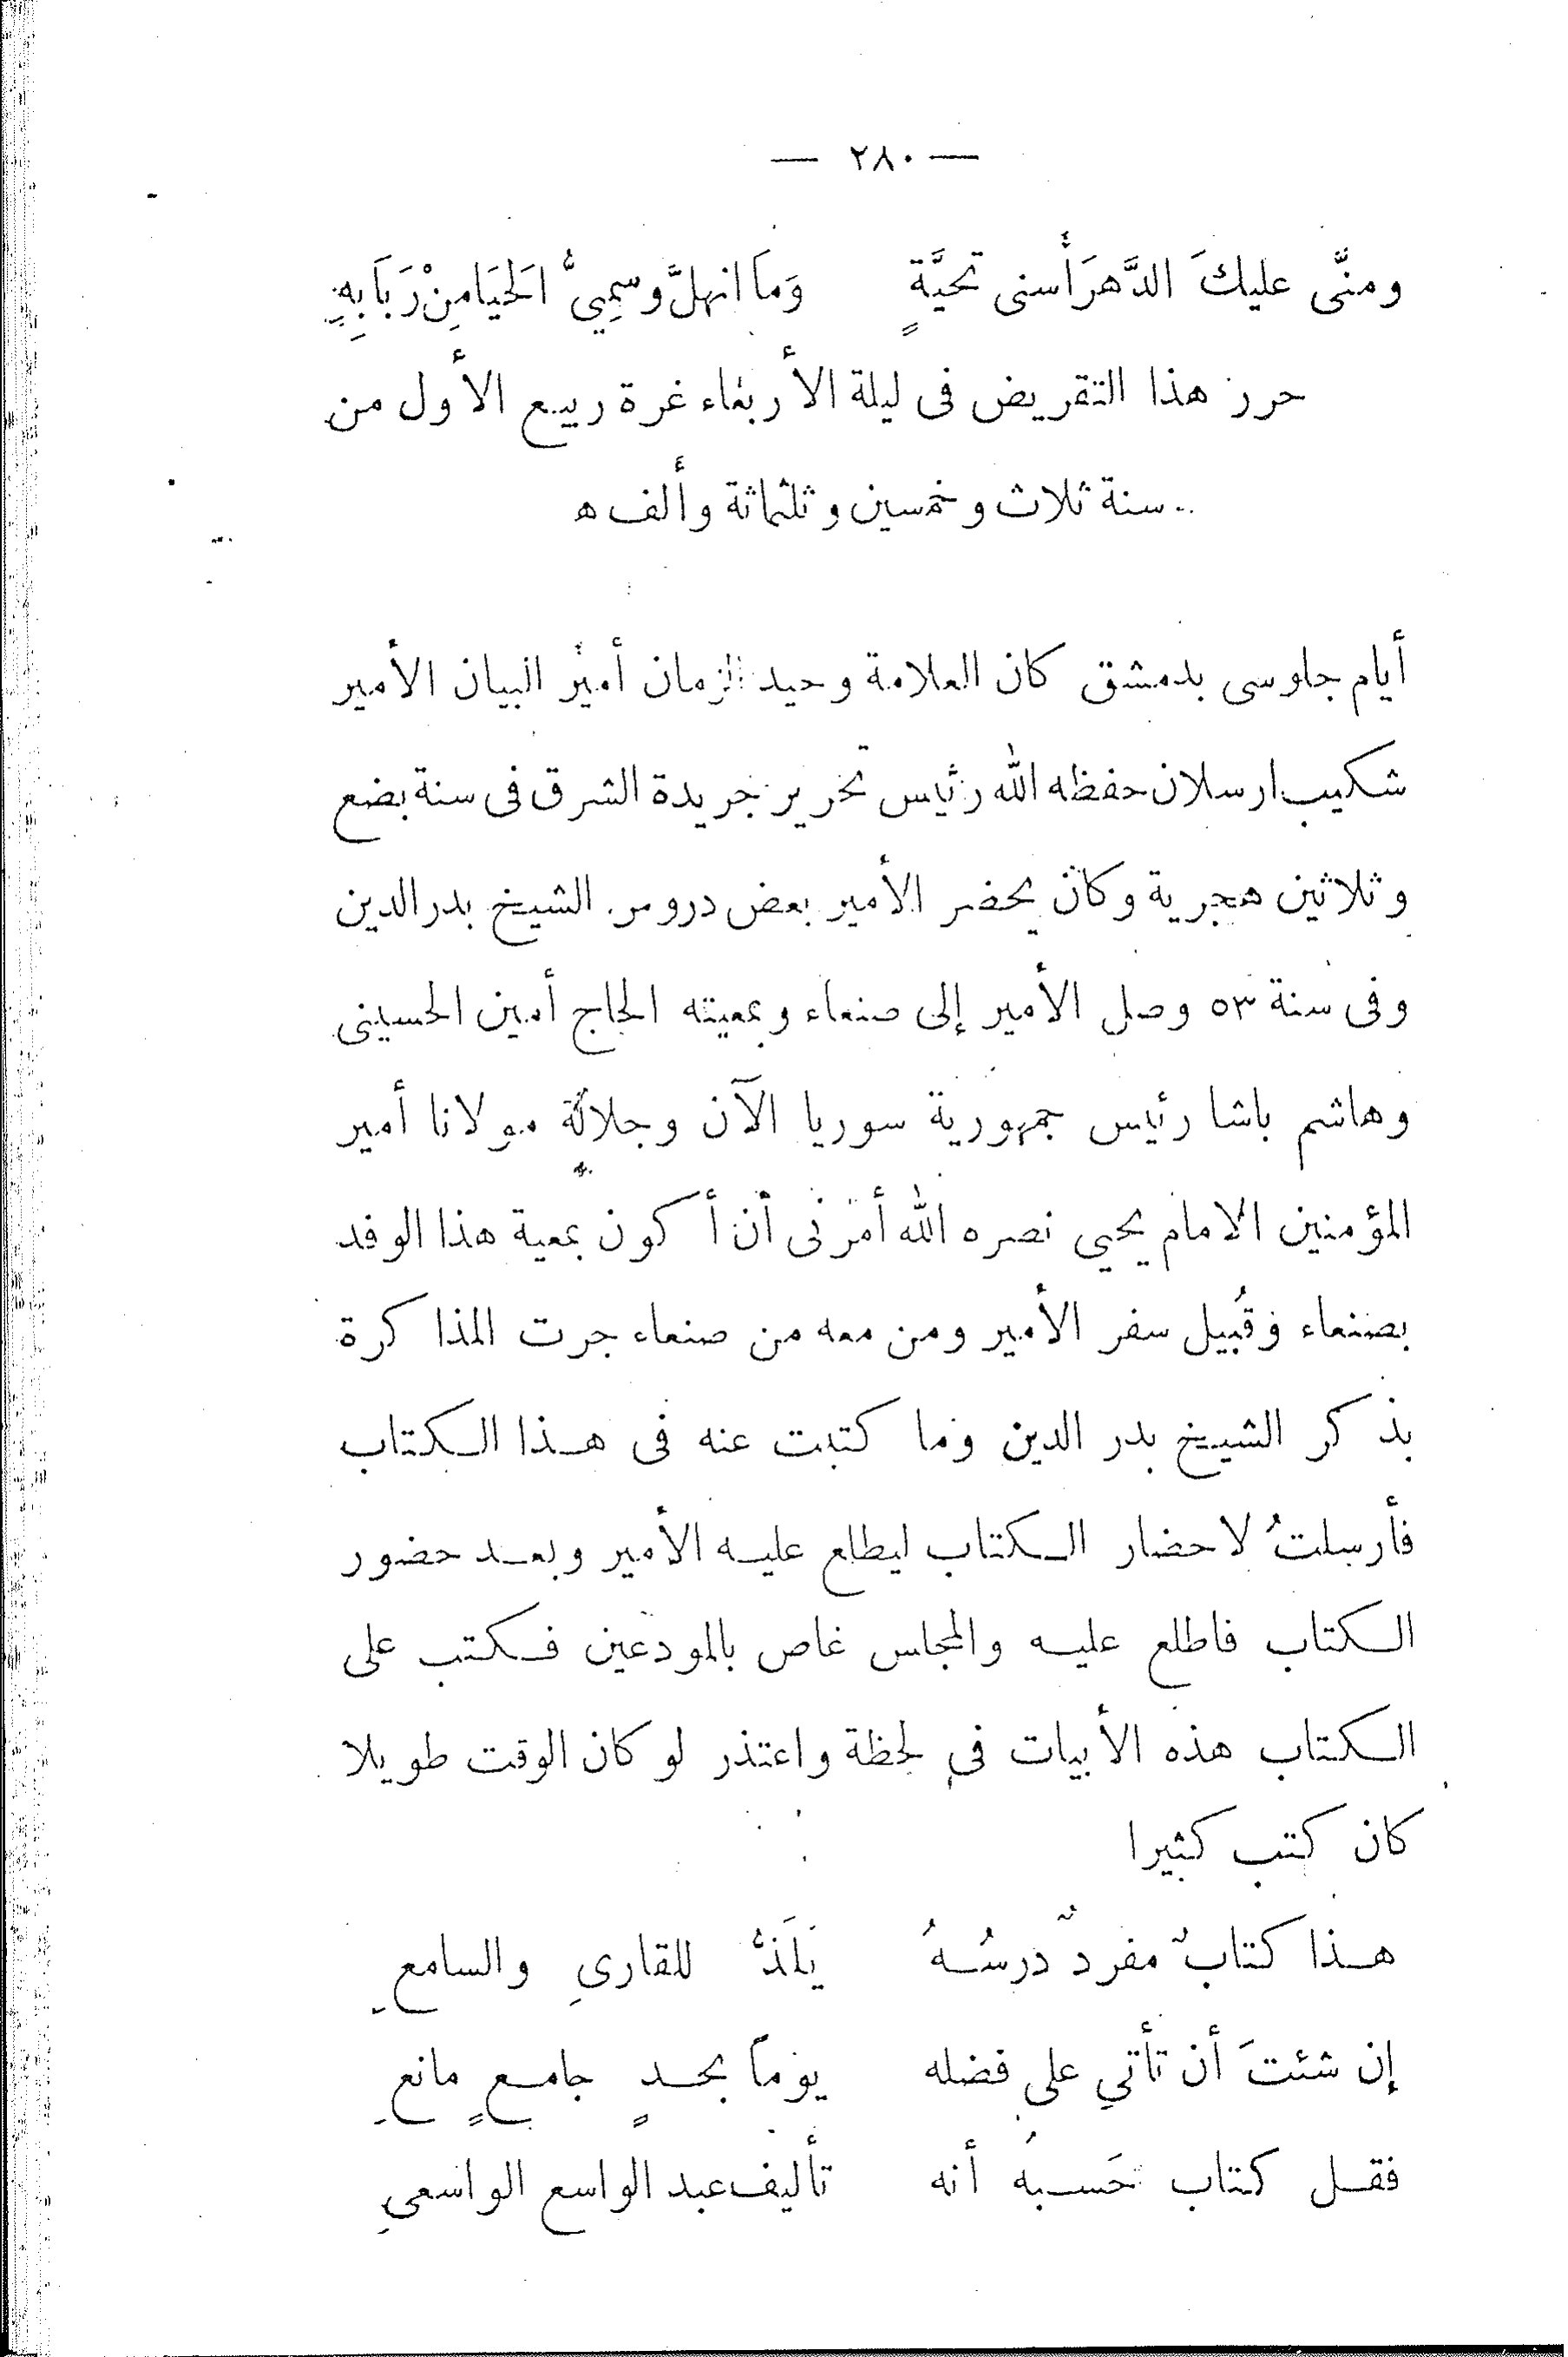 — ٢٨٠ —
ومنَّى عليكَ الدَّهرَ أسنى تحيَّةٍ وَمَا انهلَّ وسمِيُّ الَحيَا مِنْ رَبَابِهِ
حرر هذا التقريض فى ليلة الأربعاء غرة ربيع الأول من
سنة ثلاث وخمسين وثلثمائة وألف ه
أيام جلوسى بدمشق كان العلامة وحيد الزمان أمير البيان الأمير
شكيب ارسلان حفظه الله رئيس تحرير جريدة الشرق فى سنة بضع
وثلاثين هجرية وكان يحضر الأمير بعض دروس الشيخ بدر الدين
وفى سنة ٥٣ وصل الأمير إلى صنعاء وبمعيته الحاج أمين الحسينى
وهاشم باشا رئيس جمهورية سوريا الآن وجلالة مولانا أمير
المؤمنين الامام يحيي نصره الله أمرنى أن أكون بمعية هذا الوفد
بصنعاء وقُبيل سفر الأمير ومن معه من صنعاء جرت المذاكرة
بذكر الشيخ بدر الدين وما كتبت عنه فى هذا الكتاب
فأرسلتُ لاحضار الكتاب ليطلع عليه الأمير وبعد حضور
الكتاب فاطلع عليه والمجلس غاص بالمودعين فكتب على
الكتاب هذه الأبيات في لحظة واعتذر لو كان الوقت طويلا
كان كتب كثيرا
هذا كتابٌ مفردٌ درسُهُ يَلَذُّ للقارىِ والسامعِ
إن شئتَ أن تأتي على فضله يوماً بحدٍ جامعٍ مانعِ
فقل كتاب حَسبهُ أنه تأليف عبد الواسع الواسعىِ